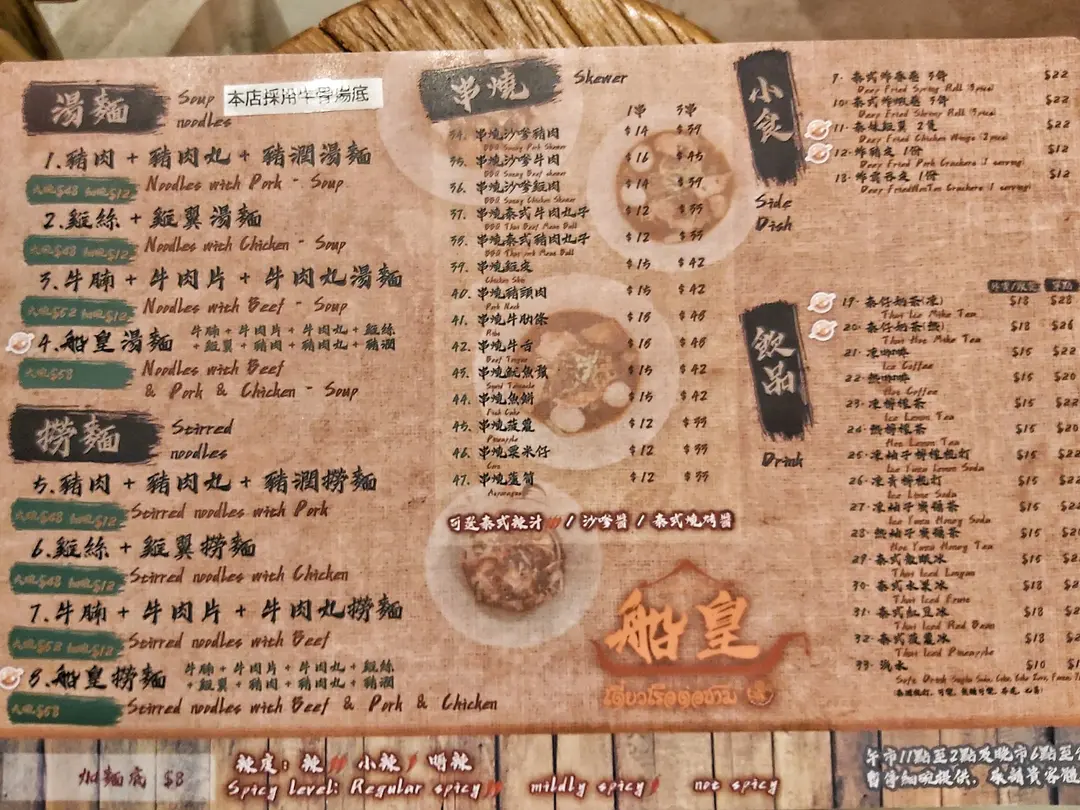 湯麵
Soup noodles
本店採用牛骨湯底
1.豬肉 + 豬肉丸 + 豬潤湯麵
大碗$48 細碗$12
Noodles with Pork - Soup
2.雞絲 + 雞翼湯麵
大碗$48 細碗$12
Noodles with Chicken - Soup
3.牛腩 + 牛肉片 + 牛肉丸湯麵
大碗$52 細碗$12
Noodles with Beef - Soup
4.船皇湯麵
牛腩 + 牛肉片 + 牛肉丸 + 雞絲
+ 雞翼 + 豬肉 + 豬肉丸 + 豬潤
大碗$58
Noodles with Beef
& Pork & Chicken - Soup
撈麵
Stirred noodles
5.豬肉 + 豬肉丸 + 豬潤撈麵
大碗$48 細碗$12
Stirred noodles with Pork
6.雞絲 + 雞翼撈麵
大碗$48 細碗$12
Stirred noodles with Chicken
7.牛腩 + 牛肉片 + 牛肉丸撈麵
大碗$52 細碗$12
Stirred noodles with Beef
8.船皇撈麵
牛腩 + 牛肉片 + 牛肉丸 + 雞絲
+ 雞翼 + 豬肉 + 豬肉丸 + 豬潤
大碗$58
Stirred noodles with Beef & Pork & Chicken
加麵底 $8
串燒
Skewer
1串 3串
34. 串燒沙嗲豬肉 $14 $39
BBQ Satay Pork Skewer
35. 串燒沙嗲牛肉 $16 $45
BBQ Satay Beef Skewer
36. 串燒沙嗲雞肉 $14 $39
BBQ Satay Chicken Skewer
37. 串燒泰式牛肉丸子 $12 $33
BBQ Thai Beef Meat Ball
38. 串燒泰式豬肉丸子 $12 $33
BBQ Thai Pork Meat Ball
39. 串燒雞皮 $15 $42
Chicken Skin
40. 串燒豬頸肉 $15 $42
Pork Neck
41. 串燒牛肋條 $16 $45
Ribs
42. 串燒牛舌 $16 $45
Beef Tongue
43. 串燒魷魚鬚 $15 $42
Squid Tentacle
44. 串燒魚餅 $15 $42
Fish Cake
45. 串燒菠蘿 $12 $33
Pineapple
46. 串燒粟米仔 $12 $33
Corn
47. 串燒蘆筍 $12 $33
Asparagus
可選泰式辣汁 / 沙嗲醬 / 泰式燒烤醬
船皇
辣度: 辣 小辣 唔辣
Spicy level: Regular spicy mildly spicy not spicy
小食
Side Dish
9. 泰式炸春卷 3件 $22
Deep Fried Spring Roll (3pics)
10. 泰式炸蝦卷 3件 $22
Deep Fried Shrimp Roll (3pics)
11. 泰妹雞翼 2隻 $22
Deep Fried Chicken Wings (2pics)
12. 炸豬皮 1份 $12
Deep Fried Pork Crackers (1 serving)
13. 炸雲吞皮 1份 $12
Deep Fried WonTon Crackers (1 serving)
飲品
Drink
外賣/跟餐 單點
19. 泰仔奶茶(凍) $18 $28
Thai Ice Milk Tea
20. 泰仔奶茶(熱) $18 $26
Thai Hot Milk Tea
21. 凍咖啡 $15 $22
Ice Coffee
22. 熱咖啡 $15 $20
Hot Coffee
23. 凍檸檬茶 $15 $22
Ice Lemon Tea
24. 熱檸檬茶 $15 $20
Hot Lemon Tea
25. 凍柚子檸檬梳打 $15 $22
Ice Yuzu Lemon Soda
26. 凍青檸梳打 $15
Ice Lime Soda
27. 凍柚子蜜糖茶 $15
Ice Yuzu Honey Soda
28. 熱柚子蜜糖茶 $15
Hot Yuzu Honey Tea
29. 泰式龍眼冰 $15
Thai Iced Longan
30. 泰式水果冰 $18
Thai Iced Fruit
31. 泰式紅豆冰 $18
Thai Iced Red Bean
32. 泰式菠蘿冰 $18
Thai Iced Pineapple
33. 汽水 $10
Soft Drink
午市11點至2點及晚市6點至
暫停細碗提供,